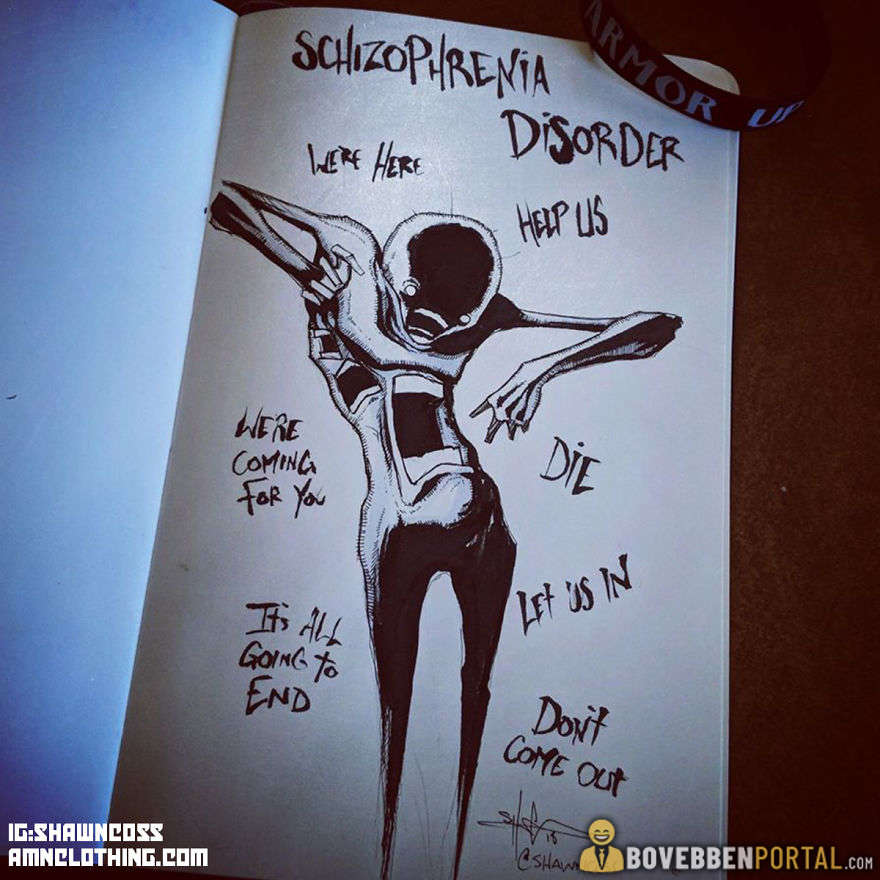 SCHIZOPHRENIA
DISORDER
ARMOR UP
WERE HERE
HELP US
WERE
COMING
FOR YOU
DIE
LET US IN
IT'S ALL
GOING TO
END
DON'T
COME OUT
18
@SHAWN
IG:SHAWNCOSS
AMNCLOTHING.COM
BOVEBBENPORTAL.COM